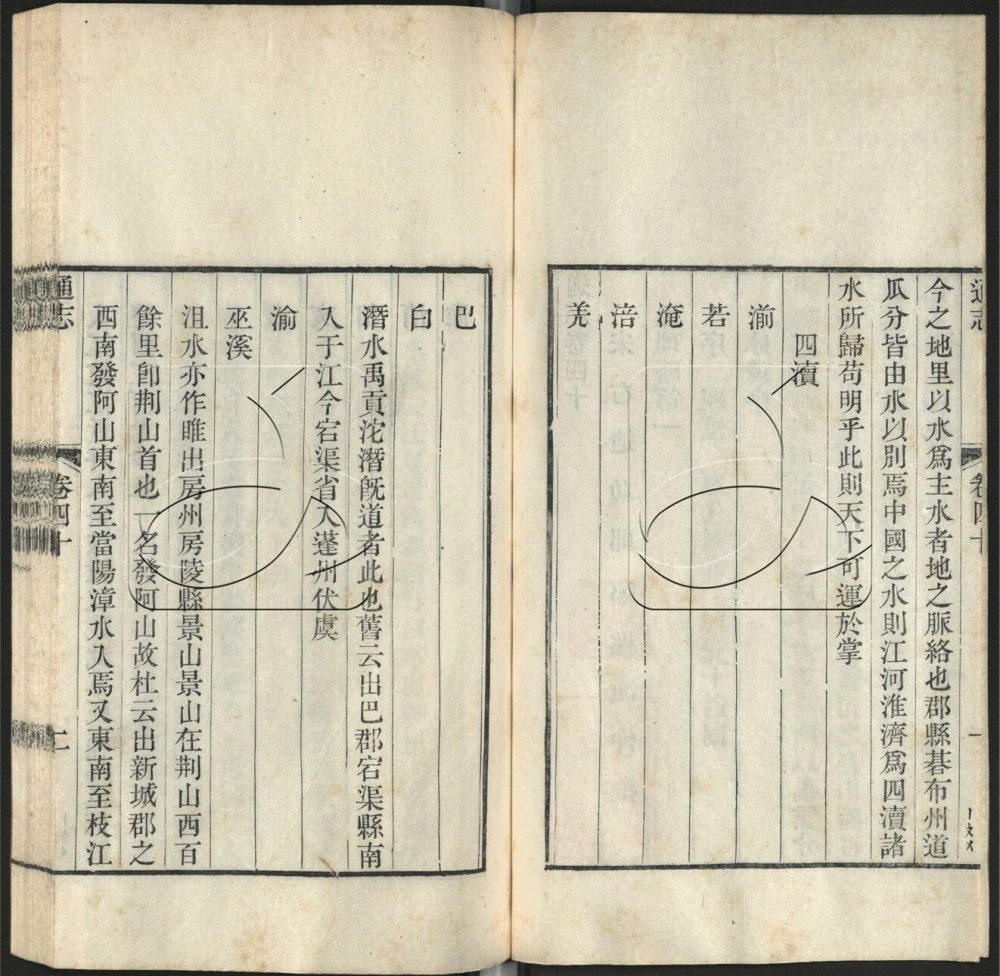 通志
卷四十
一
今之地里以水爲主水者地之脈絡也郡縣碁布州道
瓜分皆由水以別焉中國之水則江河淮濟爲四瀆諸
水所歸苟明乎此則天下可運於掌
四瀆
湔
若
淹
涪
羌
巴
白
潛水禹貢沱潛旣道者此也舊云出巴郡宕渠縣南
入于江今宕渠省入蓬州伏虞
渝
巫溪
沮水亦作睢出房州房陵縣景山景山在荆山西百
餘里卽荆山首也一名發阿山故杜云出新城郡之
西南發阿山東南至當陽漳水入焉又東南至枝江
通志
卷四十